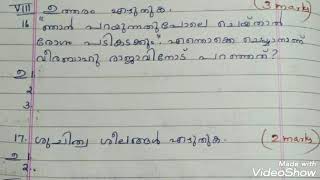 VIII ഉത്തരം എഴുതുക. (3 marks)
16 "ഞാൻ പറയുന്നതുപോലെ ചെയ്താൽ
രോഗം പടികടക്കും". എന്തൊക്കെ ചെയ്യാനാണ്
വീരബാഹു രാജാവിനോട് പറഞ്ഞത്?
ഉ 1.
2.
3.
17. ശുചിത്വ ശീലങ്ങൾ എഴുതുക. (2 marks)
ഉ 1.
2.
Made with
VideoShow